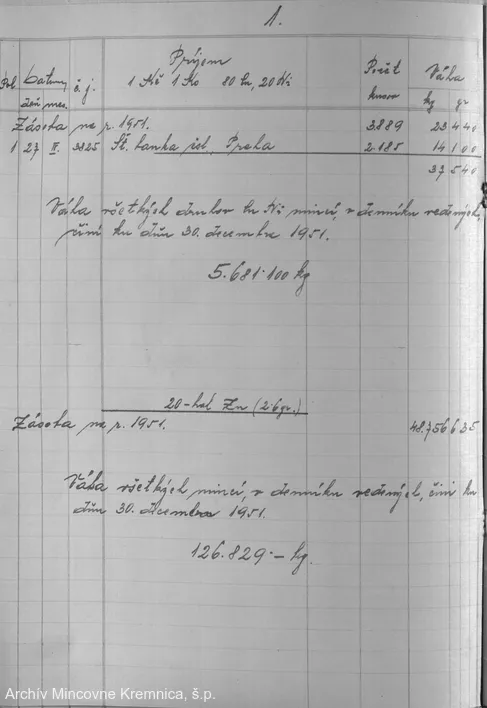 1.
Príjem
Pol. Datum, č. j. 1 Kč 1 Ks 80 Cu, 20 Ni Počet Váha
deň mes. kusov kg gr
Zásoba na r. 1951. 3.889 23 440
1 27 II. 3825 Št. banka čsl., Praha 2.185 14 100
37 540
Váha všetkých druhov Cu Ni mincí, v denníku vedených,
činí ku dňu 30. decembra 1951.
5.681.100 kg
20-hal Zn (2.6 gr.)
Zásoba na r. 1951. 48.756 635
Váha všetkých mincí, v denníku vedených, činí ku
dňu 30. decembra 1951.
126.829.- kg.
Archív Mincovne Kremnica, š.p.